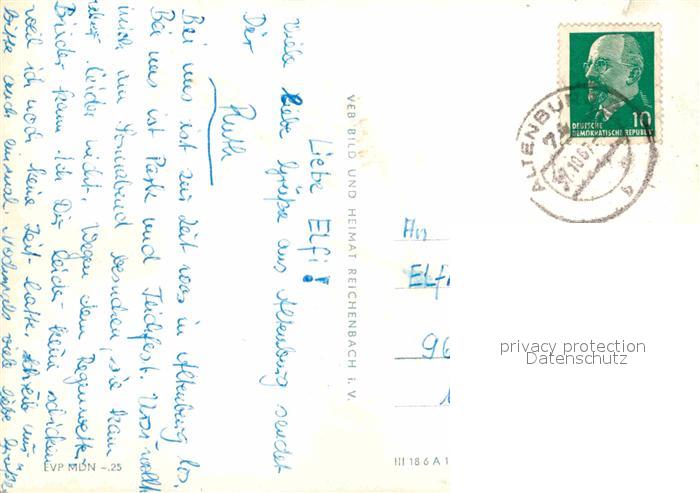 Liebe Elfi!
Viele liebe Grüße aus Altenburg sendet
Dir
Ruth
Bei uns ist zur Zeit was in Altenburg los.
Bei uns ist Park und Teichfest. Ursi wollte
mich am Sonnabend besuchen, sie kam
aber leider nicht. Wegen dem Regenwetter.
Bilder kann ich Dir leider keine schicken
weil ich noch keine Zeit hatte. Schreib mir
bitte auch einmal. Nochmals viele liebe Grüße
VEB BILD UND HEIMAT REICHENBACH i. V.
EVP MDN -.25
III 18 6 A 1
An
ELF
96
ALTENBURG
10
DEUTSCHE
DEMOKRATISCHE REPUBLIK
privacy protection
Datenschutz